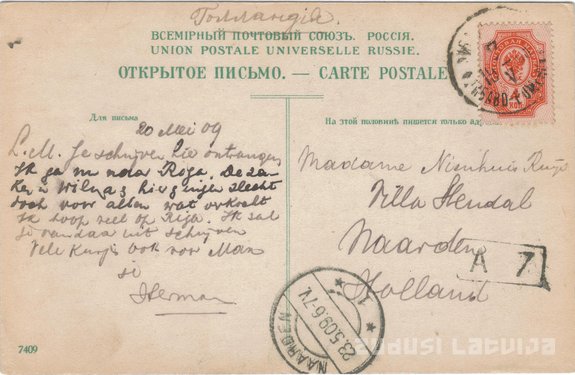 Голландія.
ВСЕМІРНЫЙ ПОЧТОВЫЙ СОЮЗЪ. РОССІЯ.
UNION POSTALE UNIVERSELLE RUSSIE.
ОТКРЫТОЕ ПИСЬМО. — CARTE POSTALE.
Для письма
На этой половинѣ пишется только
20 Mei 09
L. M. Je schrijven hier ontvangen
Ik ga nu naar Riga. De za
ken in Wilna hier gingen slecht
doch voor allen wat verkocht
Ik hoop veel op Riga. Ik zal
je vandaar uit schrijven
Vele kusjes ook voor Man
Herman
Madame Nienhuis
Villa Hendal
Naarden
Holland
A 7
4
КОП
1
23.5.09.6-7V.
NAARDEN
7409
ZUDUSI LATVIJA